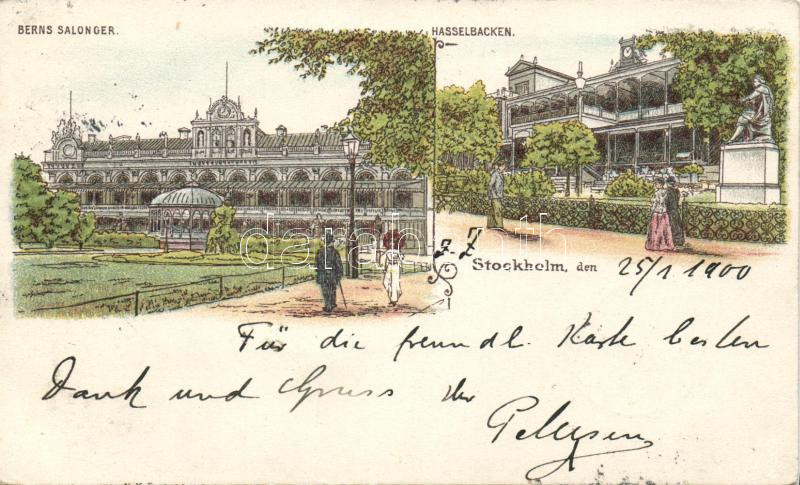 BERNS SALONGER.
HASSELBACKEN.
darabanth
Z.Z.
Stockholm, den 25/1 1900
Für die freundl. Karte besten
Dank und Gruss Ihr
Petersen